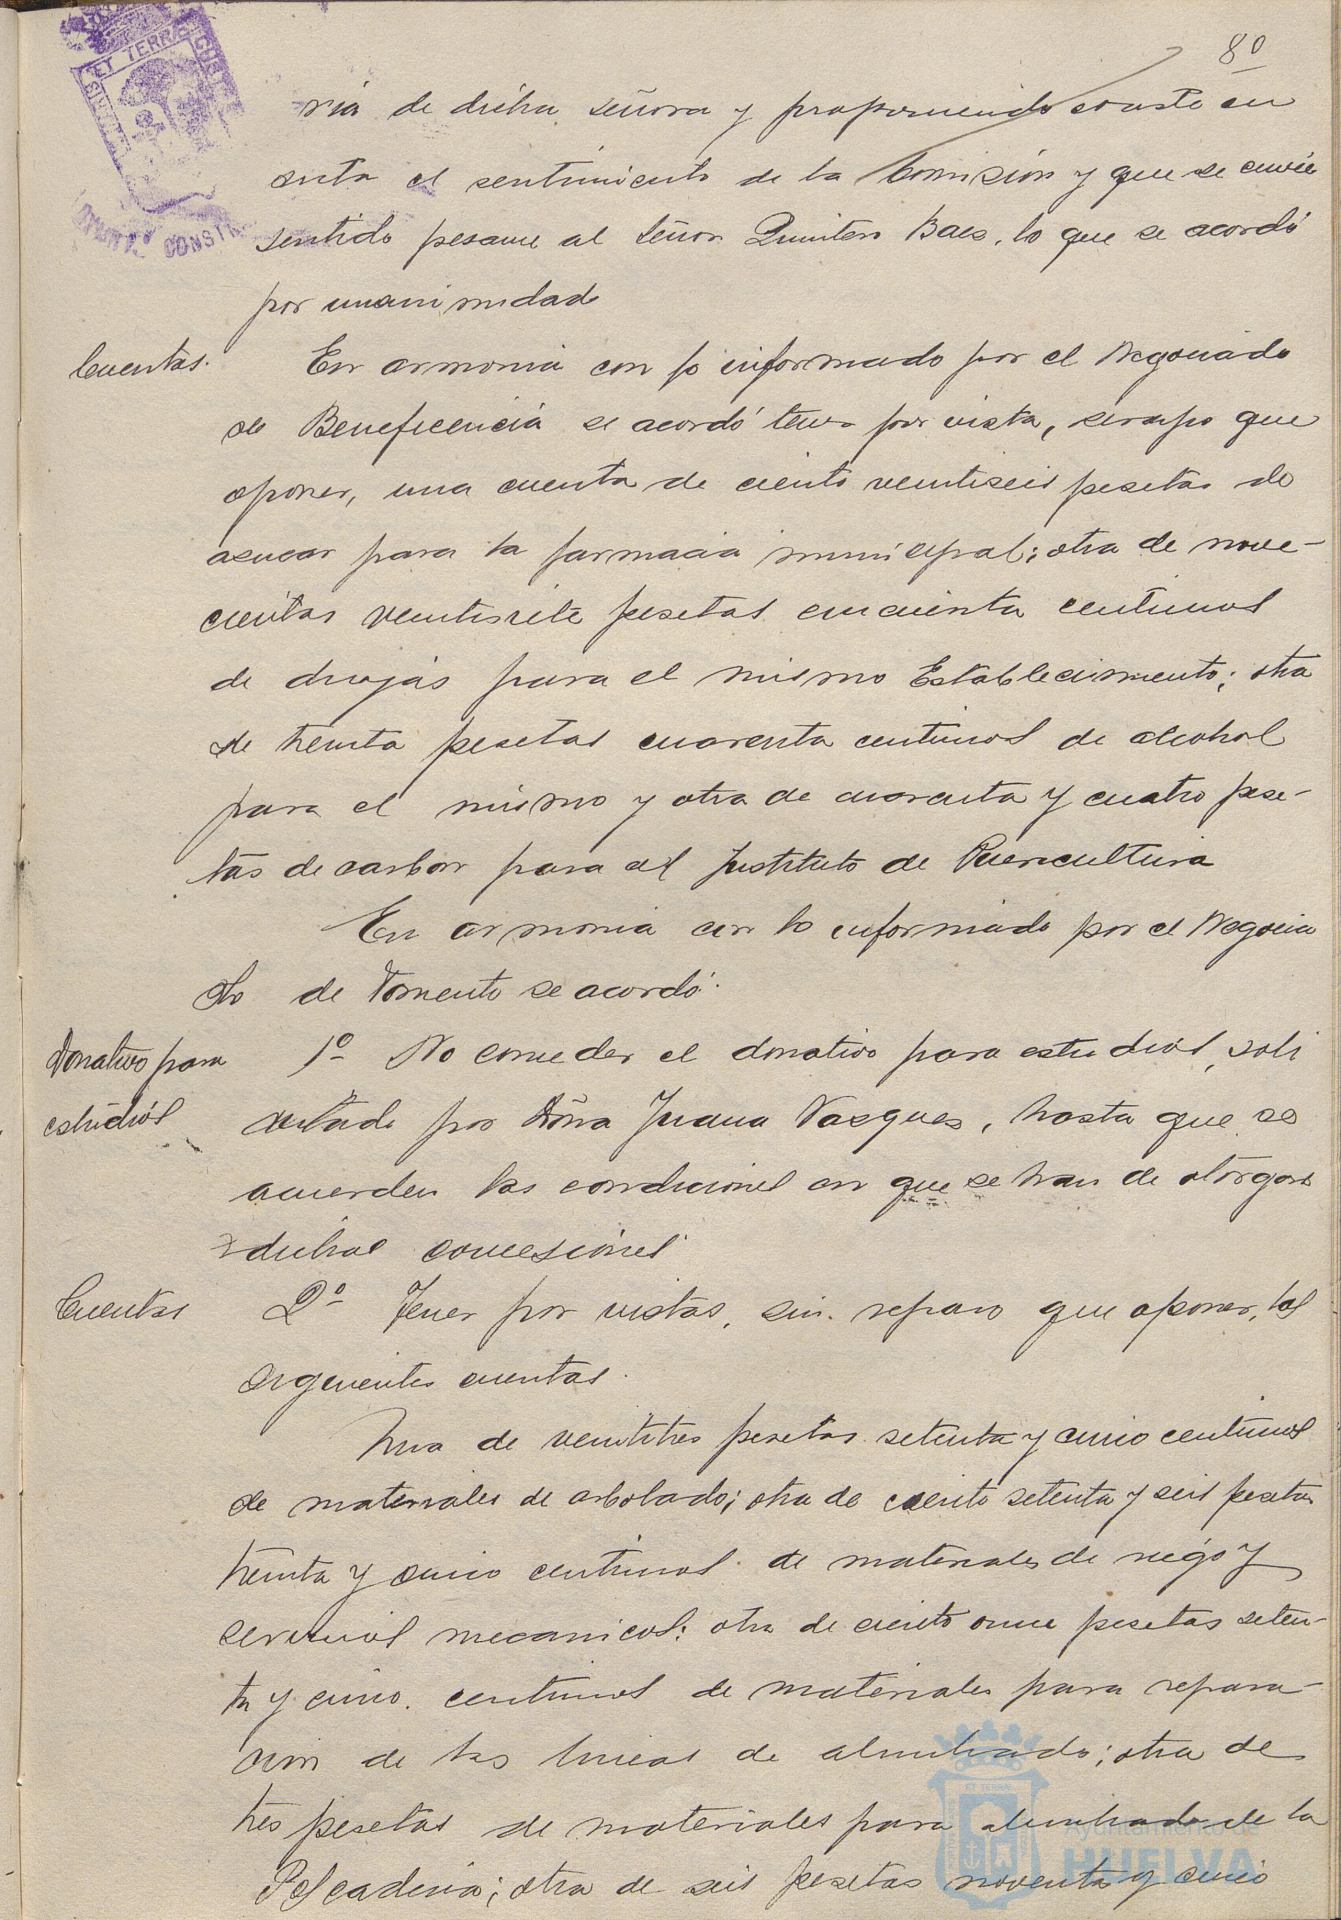 80
ria de dicha señora y proponiendo conste en
acta el sentimiento de la Comisión y que se envie
sentido pesame al señor Quintero Baez, lo que se acordó
por unanimidad
Cuentas. En armonia con lo informado por el Negociado
de Beneficencia se acordó tener por vista, sin reparo que
oponer, una cuenta de ciento veintiseis pesetas de
azucar para la farmacia municipal; otra de nove-
cientas veintisiete pesetas cincuenta centimos
de drogas para el mismo Establecimiento; otra
de treinta pesetas cuarenta centimos de alcohol
para el mismo y otra de cuarenta y cuatro pese-
tas de carbon para el Instituto de Puericultura
En armonia con lo informado por el Negocia
do de Fomento se acordó:
Donativo para 1º No conceder el donativo para estudios, soli
estudios citado por Doña Juana Vazquez, hasta que se
acuerden las condiciones en que se han de otorgar
dichas concesiones
Cuentas 2º Tener por vistas, sin reparo que oponer, las
siguientes cuentas.
Una de veintitres pesetas setenta y cinco centimos
de materiales de arbolado; otra de ciento setenta y seis pesetas
treinta y cinco centimos de materiales de riego y
servicios mecanicos; otra de ciento once pesetas seten-
ta y cinco centimos de materiales para repara-
cion de las lineas de alumbrado; otra de
tres pesetas de materiales para alumbrado de la
Pescaderia; otra de seis pesetas noventa y cinco
ET TERRÆ
CONSTI
Ayuntamiento de
HUELVA